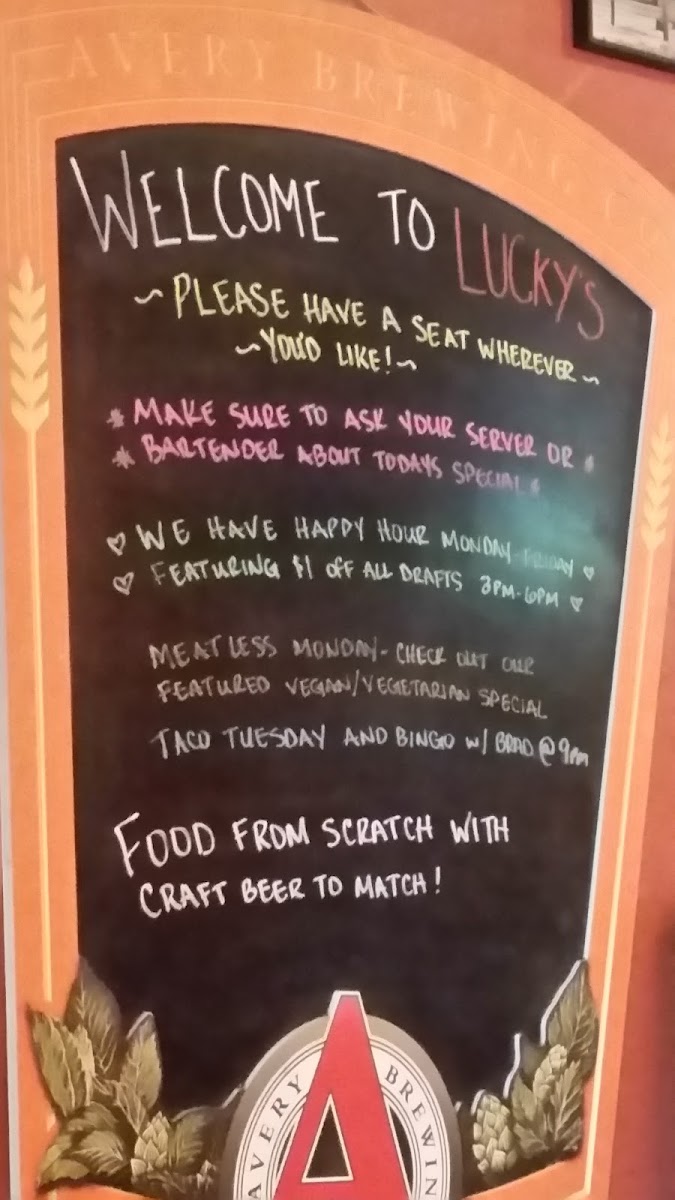 AVERY BREWING CO
WELCOME TO LUCKY'S
~ PLEASE HAVE A SEAT WHEREVER ~
~ YOU'D LIKE! ~
* MAKE SURE TO ASK YOUR SERVER OR *
* BARTENDER ABOUT TODAYS SPECIAL *
♡ WE HAVE HAPPY HOUR MONDAY-FRIDAY ♡
♡ FEATURING $1 OFF ALL DRAFTS 3PM-6PM ♡
MEATLESS MONDAY- CHECK OUT OUR
FEATURED VEGAN/VEGETARIAN SPECIAL
TACO TUESDAY AND BINGO W/ BRAD @ 9pm
FOOD FROM SCRATCH WITH
CRAFT BEER TO MATCH!
A
AVERY BREWIN